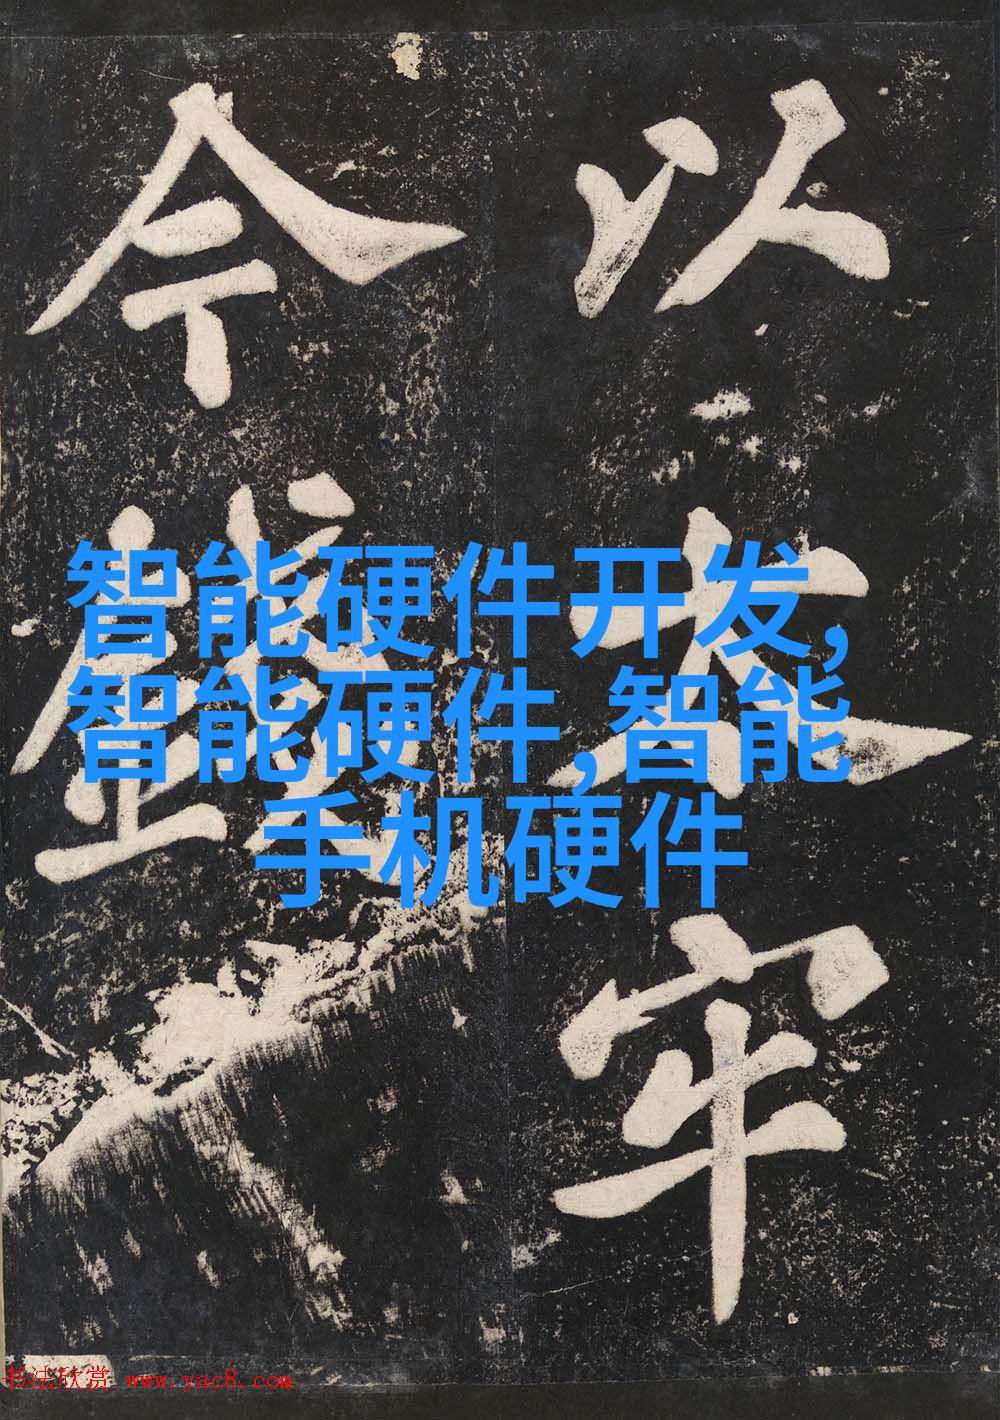 以太牢
今錢
智能硬件开发,
智能硬件,智能
手机硬件
书法欣赏 www.yac8.com